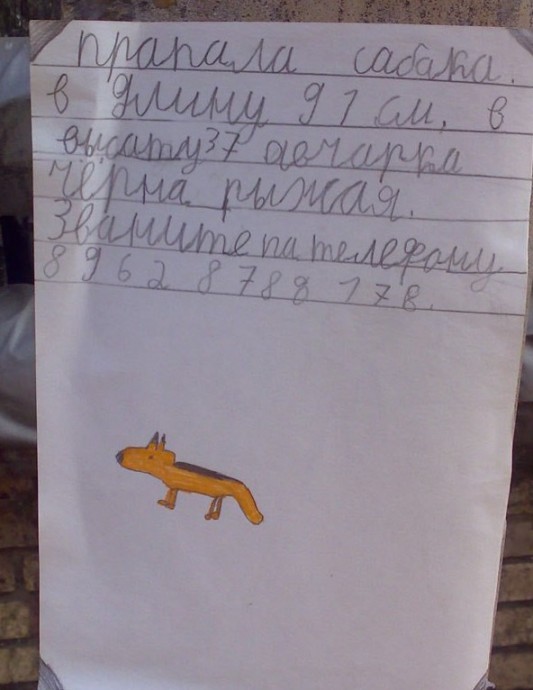 прапала сабака.
в длину 91 см, в
высату 37 авчарка
чёрна рыжая.
Званите па телефону
8 9 6 2 8 7 8 8 1 7 8.